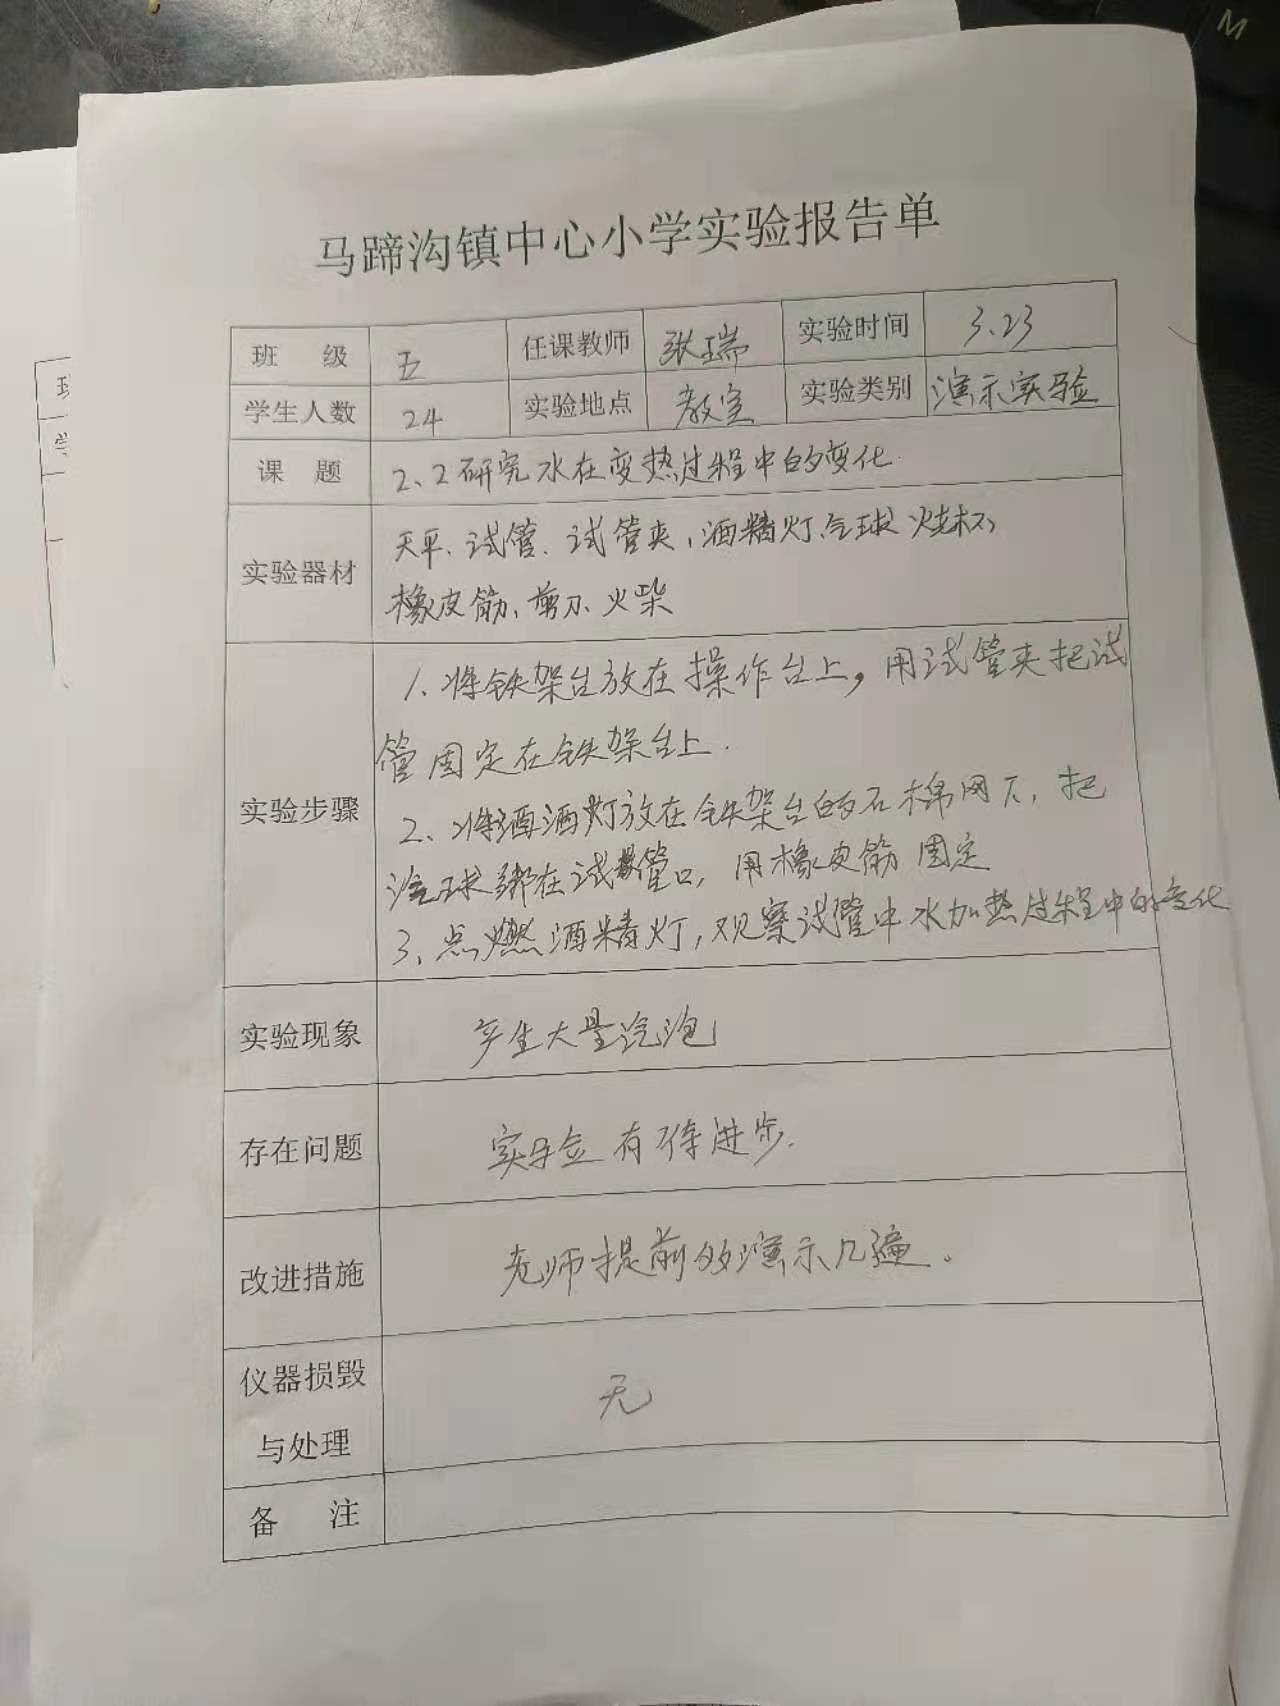 M
马蹄沟镇中心小学实验报告单
班 级 五 任课教师 张瑞 实验时间 3.23
学生人数 24 实验地点 教室 实验类别 演示实验
课 题 2.2研究水在变热过程中的变化
实验器材 天平、试管、试管夹、酒精灯、气球 烧杯
橡皮筋、剪刀、火柴
实验步骤 1、将铁架台放在操作台上，用试管夹把试
管固定在铁架台上.
2、将酒酒灯放在铁架台的石棉网下，把
汽球绑在试管口，用橡皮筋固定
3、点燃酒精灯，观察试管中水加热过程中的变化
实验现象 产生大量汽泡
存在问题 实验有待进步.
改进措施 老师提前多演示几遍。
仪器损毁
与处理 无
备 注